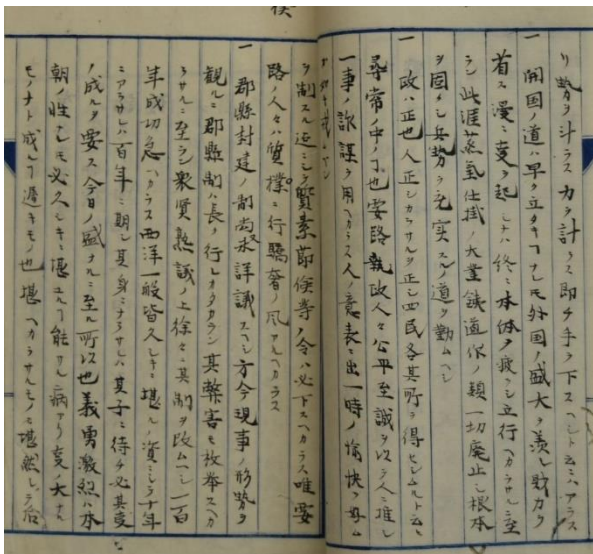 リ勢ヲ計ラス力ヲ計ラス即チ手ヲ下スヘシト云ニハアラス
一開国ノ道ハ早ク立タキ丁ナレモ外国ノ盛大ヲ羨ミ財力ヲ
省ス漫ニ変ヲ起シナハ終ニ本体ヲ疲ラシ立行ヘカラサルニ至
ラン此涯蒸氣仕掛ノ大業鉄道作ノ類一切廃止シ根本
ヲ固クシ兵勢ヲ充実スルノ道ヲ勤ムヘシ
一政ハ正也人正シカラサルヲ正シ四民各其所ヲ得セシムルト云ハ
尋常ノ中ノ丁也要路執政人々公平至誠ヲ以テ人ニ推シ
一事ノ詐謀ヲ用ヘカラス人ノ意表ニ出一時ノ愉快ヲ好ム
ヲ制スル迄ニシテ質素節倹等ノ令ハ必下スヘカラス唯要
路ノ人々ハ質樸ニ行驕奢ノ風アルヘカラス
一郡縣封建ノ制尚又詳議スヘシ方今現事ノ形勢ヲ
觀ルニ郡縣制ハ長ク行レカタカラン其弊害モ枚挙スヘカ
ラサルニ至ラン衆賢熟議ノ上徐々其制ヲ改ムヘシ一百
年成功急ヘカラス西洋一般皆久シキニ堪ルノ資ニシテ十年
ニアラサレハ百年ニ期シ其身ニナラサレハ其子ニ待チ必其変
ノ成ルヲ要ス今日ノ盛ナルニ至ル所以也義勇激烈ハ本
朝ノ性ナレモ必久シキニ堪ユル丁能サル病アリ変ノ大ナル
モノナト成シテ遂キモノ也堪ヘカラサルモノモ堪然シテ後